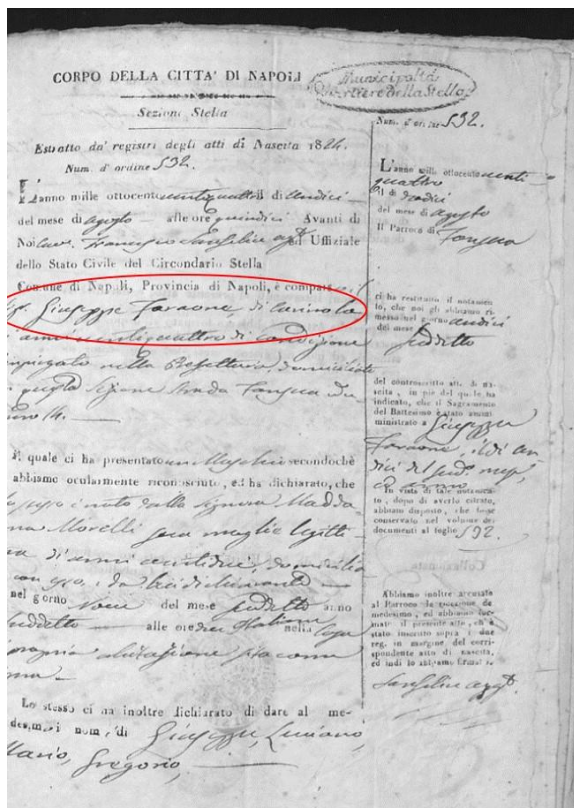 CORPO DELLA CITTA' DI NAPOLI
Sezione Stella
Estratto da' registri degli atti di Nascita 1824.
Num. d'ordine 532.
L'anno mille ottocento ventiquattro il di undici
del mese di agosto alle ore quindici Avanti di
Noi Francesco Sanfelice ed Uffiziale
dello Stato Civile del Circondario Stella
Comune di Napoli, Provincia di Napoli, è comparso il
Giuseppe Faraone, di Carinola
di anni ventiquattro di condizione
impiegato nella Prefettura domiciliato
in questa sezione strada
quale ci ha presentato un Maschio secondochè
abbiamo ocularmente riconosciuto, ed ha dichiarato, che
lo stesso è nato dalla signora Madda-
lena Morelli sua moglie legitti-
ma di anni ventidue, domiciliata
nel giorno nove del mese suddetto anno
suddetto alle ore dieci Italiane nella casa
propria abitazione
Lo stesso ci ha inoltre dichiarato di dare al me-
desimo i nomi di Giuseppe, Luciano,
Ilario, Gregorio,
Municipalità
Quartiere Della Stella
Num. d'ordine 532.
L'anno mille ottocento venti-
quattro
il di dodici
del mese di agosto
Il Parroco di
ci ha restituito il notamen-
to, che noi gli abbiamo ri-
messo nel giorno undici
del mese suddetto
del controscritto atto di na-
scita, in piè del quale ha
indicato, che il Sagramento
del Battesimo è stato ammi-
ministrato a Giuseppe
Faraone, il di un-
dici del sud. mese,
ed anno
In vista di tale notamen-
to, dopo di averlo cifrato,
abbiamo disposto, che fosse
conservato nel volume de'
documenti al foglio 532.
Abbiamo inoltre accusato
al Parroco la ricezione del
medesimo, ed abbiamo for-
mato il presente atto, ch'è
stato inscritto sopra i due
reg. in margine del corri-
spondente atto di nascita,
ed indi lo abbiamo
Sanfelice